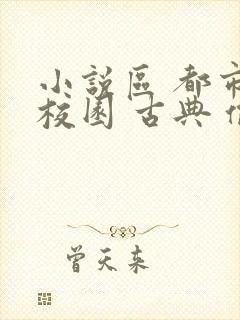 小說區 都市
校園 古典
曾天来